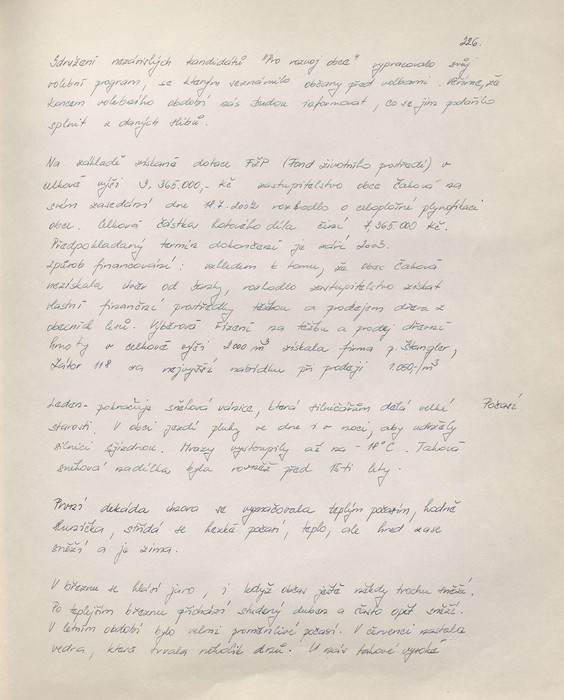 226.
Sdružení nezávislých kandidátů "Pro rozvoj obce" vypracovalo svůj
volební program, se kterým seznámilo občany před volbami. Věříme, že
koncem volebního období nás budou informovat, co se jim podařilo
splnit z daných slibů.
Na základě získané dotace FŽP (Fond životního prostředí) v
celkové výši 3,365.000,- Kč zastupitelstvo obce Čaková na
svém zasedání dne 18.7.2002 rozhodlo o celoplošné plynofikaci
obce. Celková částka hotového díla činí 7,365.000 Kč.
Předpokladaný termín dokončení je září 2003.
Způsob financování: vzhledem k tomu, že obec Čaková
nezískala úvěr od banky, rozhodlo zastupitelstvo získat
vlastní finanční prostředky těžbou a prodejem dřeva z
obecních lesů. Výběrové řízení na těžbu a prodej dřevní
hmoty v celkové výši 2000 m³ získala firma p. Štangler,
Zátor 118 za nejvyšší nabídku při prodeji 1.060,-/m³
Leden - pokračuje sněhová vánice, která silničářům dělá velké
Počasí
starosti. V obci jezdí pluhy ve dne i v noci, aby udržely
silnici sjízdnou. Mrazy vystoupily až na - 18°C. Taková
sněhová nadílka byla rovněž před 15-ti lety.
První dekáda února se vyznačovala teplým počasím, hodně
sluníčka, střídá se hezké počasí, teplo, ale hned zase
sněží a je zima.
V březnu se hlásí jaro, i když občas ještě někdy trochu sněží.
Po teplejším březnu přichází studený duben a často opět sněží.
V letním období bylo velmi proměnlivé počasí. V červenci nastala
vedra, která trvala několik dnů. U nás takové vysoké